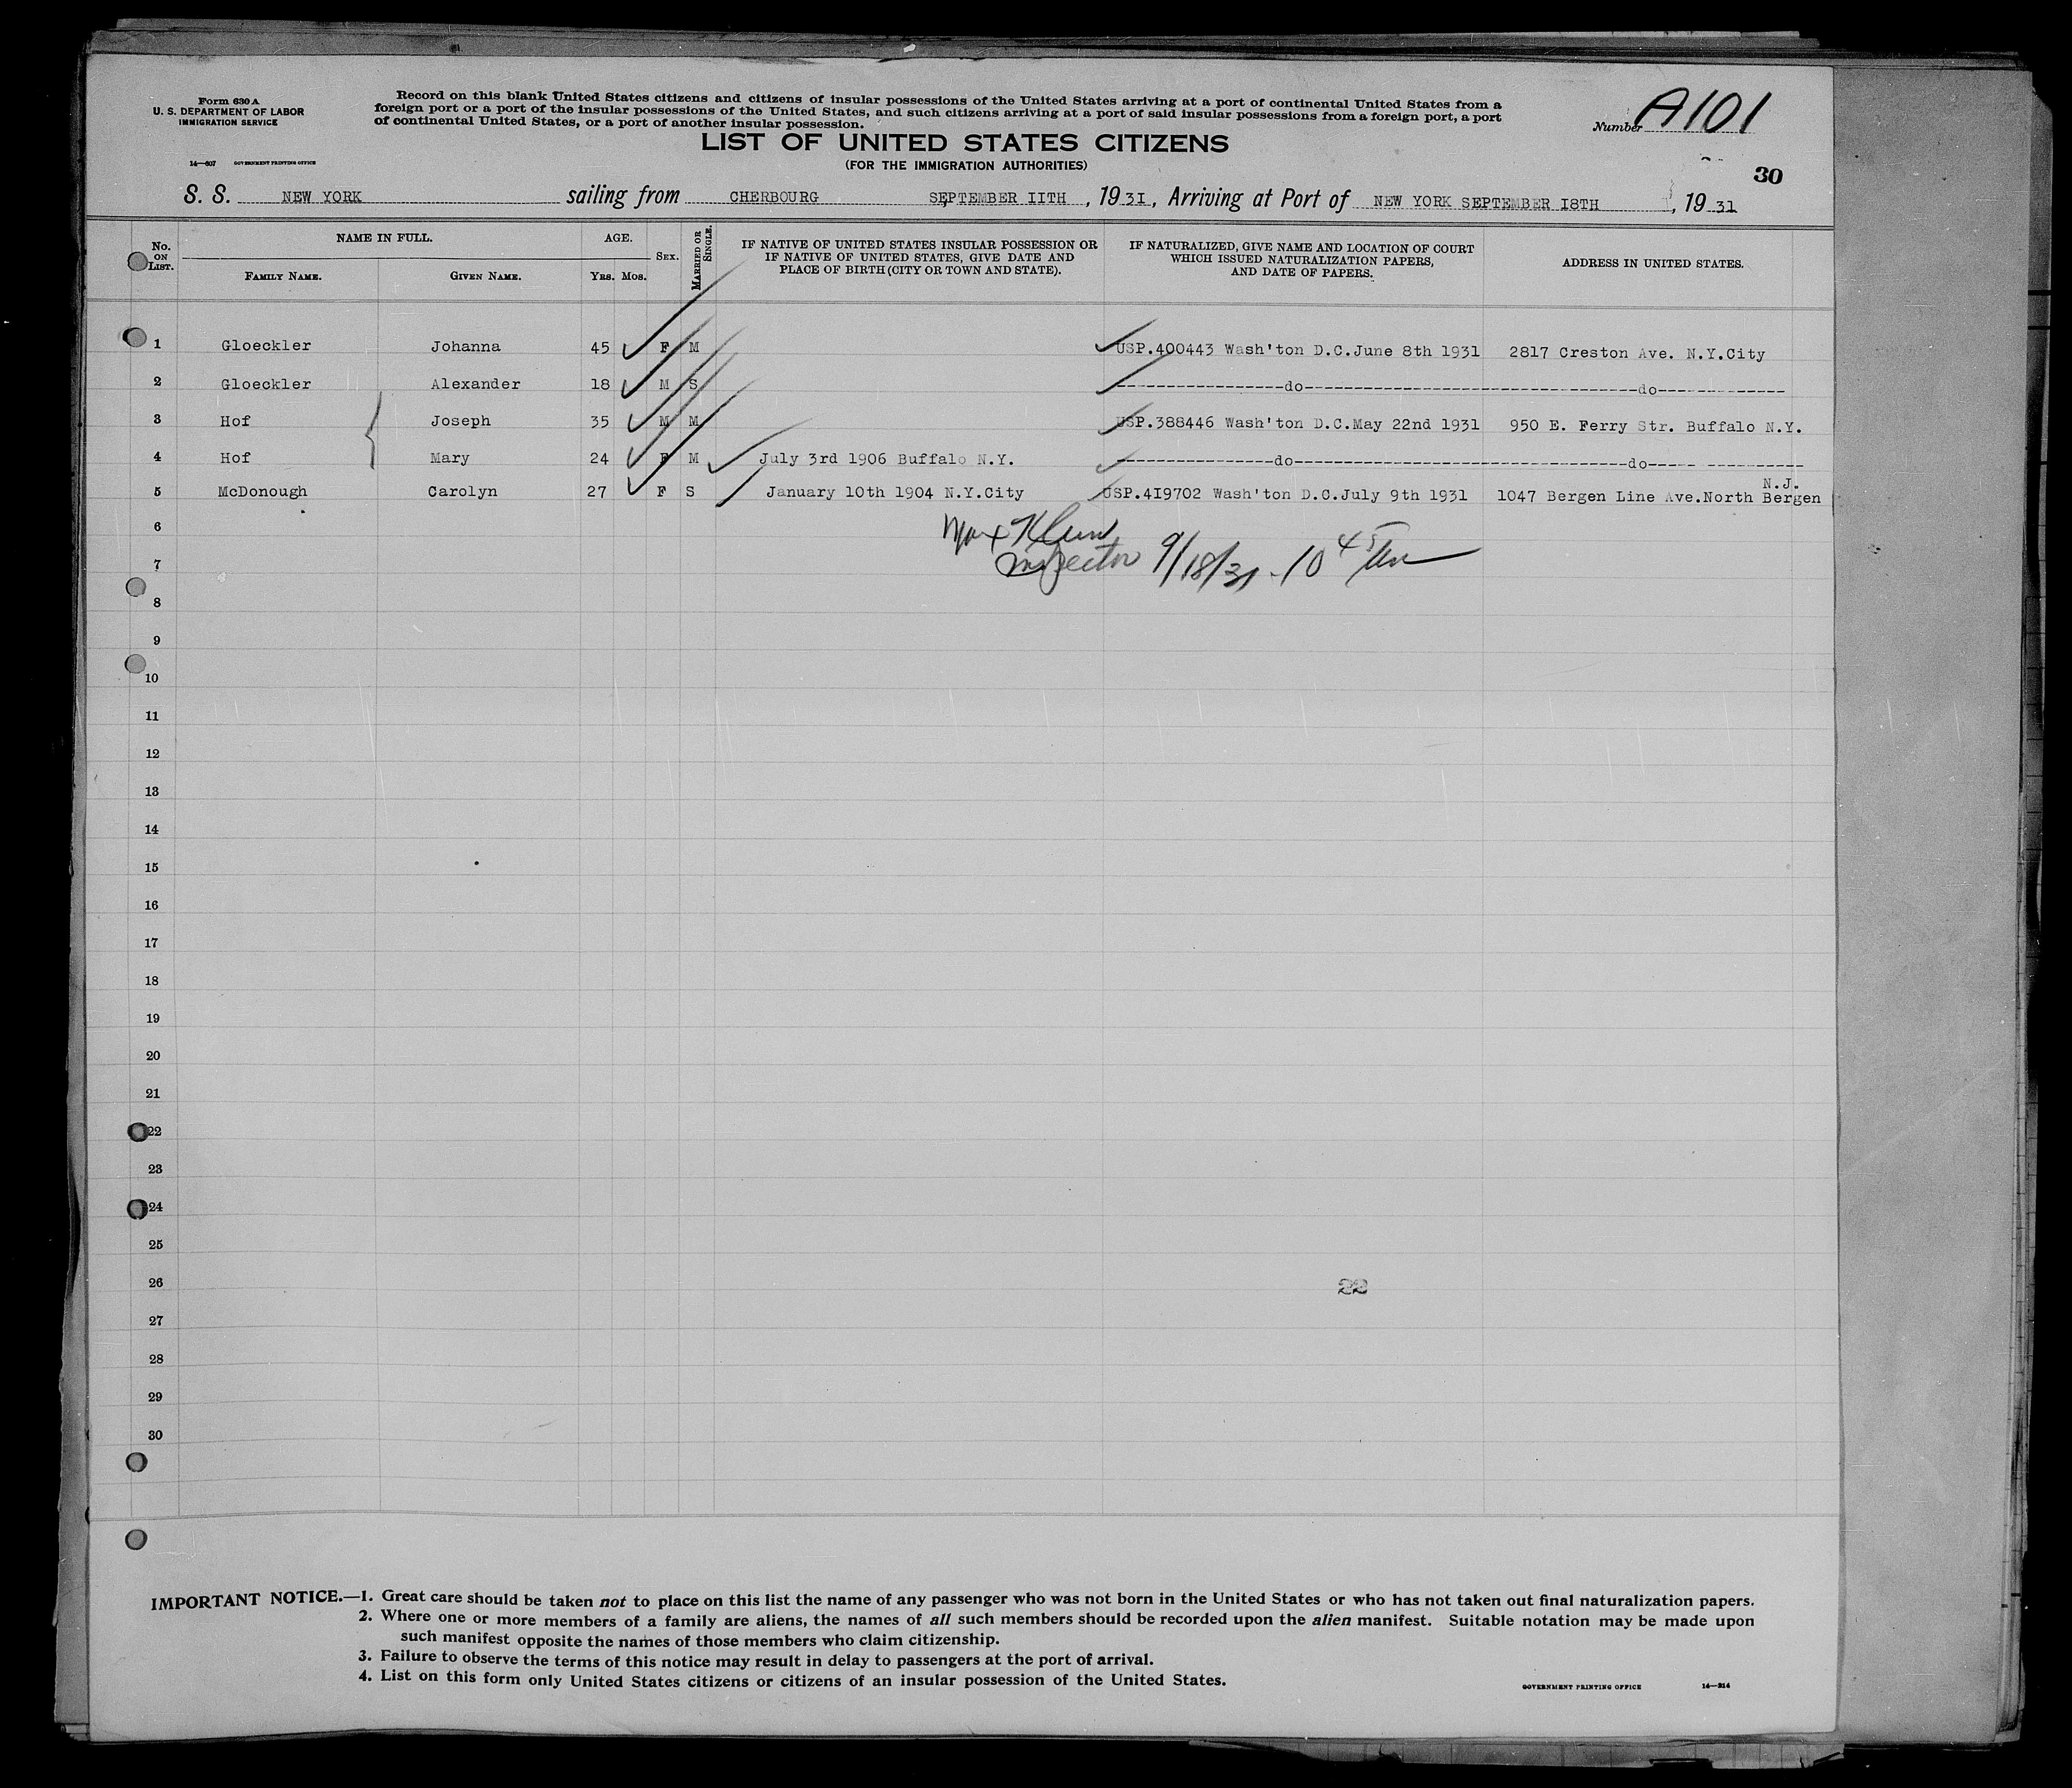 Form 630 A
U. S. DEPARTMENT OF LABOR
IMMIGRATION SERVICE
14—607 GOVERNMENT PRINTING OFFICE
Record on this blank United States citizens and citizens of insular possessions of the United States arriving at a port of continental United States from a
foreign port or a port of the insular possessions of the United States, and such citizens arriving at a port of said insular possessions from a foreign port, a port
of continental United States, or a port of another insular possession.
Number A101
LIST OF UNITED STATES CITIZENS
(FOR THE IMMIGRATION AUTHORITIES)
30
S. S. NEW YORK sailing from CHERBOURG SEPTEMBER IITH , 19 3I , Arriving at Port of NEW YORK SEPTEMBER I8TH , 19 31
No. ON LIST.
NAME IN FULL.
FAMILY NAME. GIVEN NAME.
AGE.
YRS. MOS.
SEX.
MARRIED OR SINGLE.
IF NATIVE OF UNITED STATES INSULAR POSSESSION OR
IF NATIVE OF UNITED STATES, GIVE DATE AND
PLACE OF BIRTH (CITY OR TOWN AND STATE).
IF NATURALIZED, GIVE NAME AND LOCATION OF COURT
WHICH ISSUED NATURALIZATION PAPERS,
AND DATE OF PAPERS.
ADDRESS IN UNITED STATES.
1 Gloeckler Johanna 45 F M USP.400443 Wash'ton D.C.June 8th 1931 2817 Creston Ave. N.Y.City
2 Gloeckler Alexander 18 M S -----------------do----------------------------------do-------------
3 Hof Joseph 35 M M USP.388446 Wash'ton D.C.May 22nd 1931 950 E. Ferry Str. Buffalo N.Y.
4 Hof Mary 24 F M July 3rd 1906 Buffalo N.Y. ----------------do-----------------------------------do----- ----------
N.J.
5 McDonough Carolyn 27 F S January 10th 1904 N.Y.City USP.4I9702 Wash'ton D.C.July 9th 1931 1047 Bergen Line Ave.North Bergen
6
Max
7
Inspector 9/18/31 - 10 45
8
9
10
11
12
13
14
15
16
17
18
19
20
21
22
23
24
25
26
22
27
28
29
30
IMPORTANT NOTICE.—1. Great care should be taken not to place on this list the name of any passenger who was not born in the United States or who has not taken out final naturalization papers.
2. Where one or more members of a family are aliens, the names of all such members should be recorded upon the alien manifest. Suitable notation may be made upon
such manifest opposite the names of those members who claim citizenship.
3. Failure to observe the terms of this notice may result in delay to passengers at the port of arrival.
4. List on this form only United States citizens or citizens of an insular possession of the United States.
GOVERNMENT PRINTING OFFICE 14—214